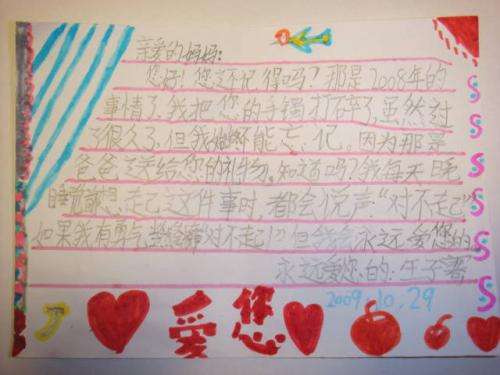 亲爱的妈妈:
您好!您还记得吗?那是2008年的
事情了,我把您的手镯打碎了,虽然过
了很久了,但我始终不能忘记。因为那是
爸爸送给您的礼物。知道吗?我每天晚
睡前想起这件事时,都会说声“对不起”
如果我有勇气 对不起!”但我会永远爱您的
永远爱您的:王子
2009.10.29
爱您